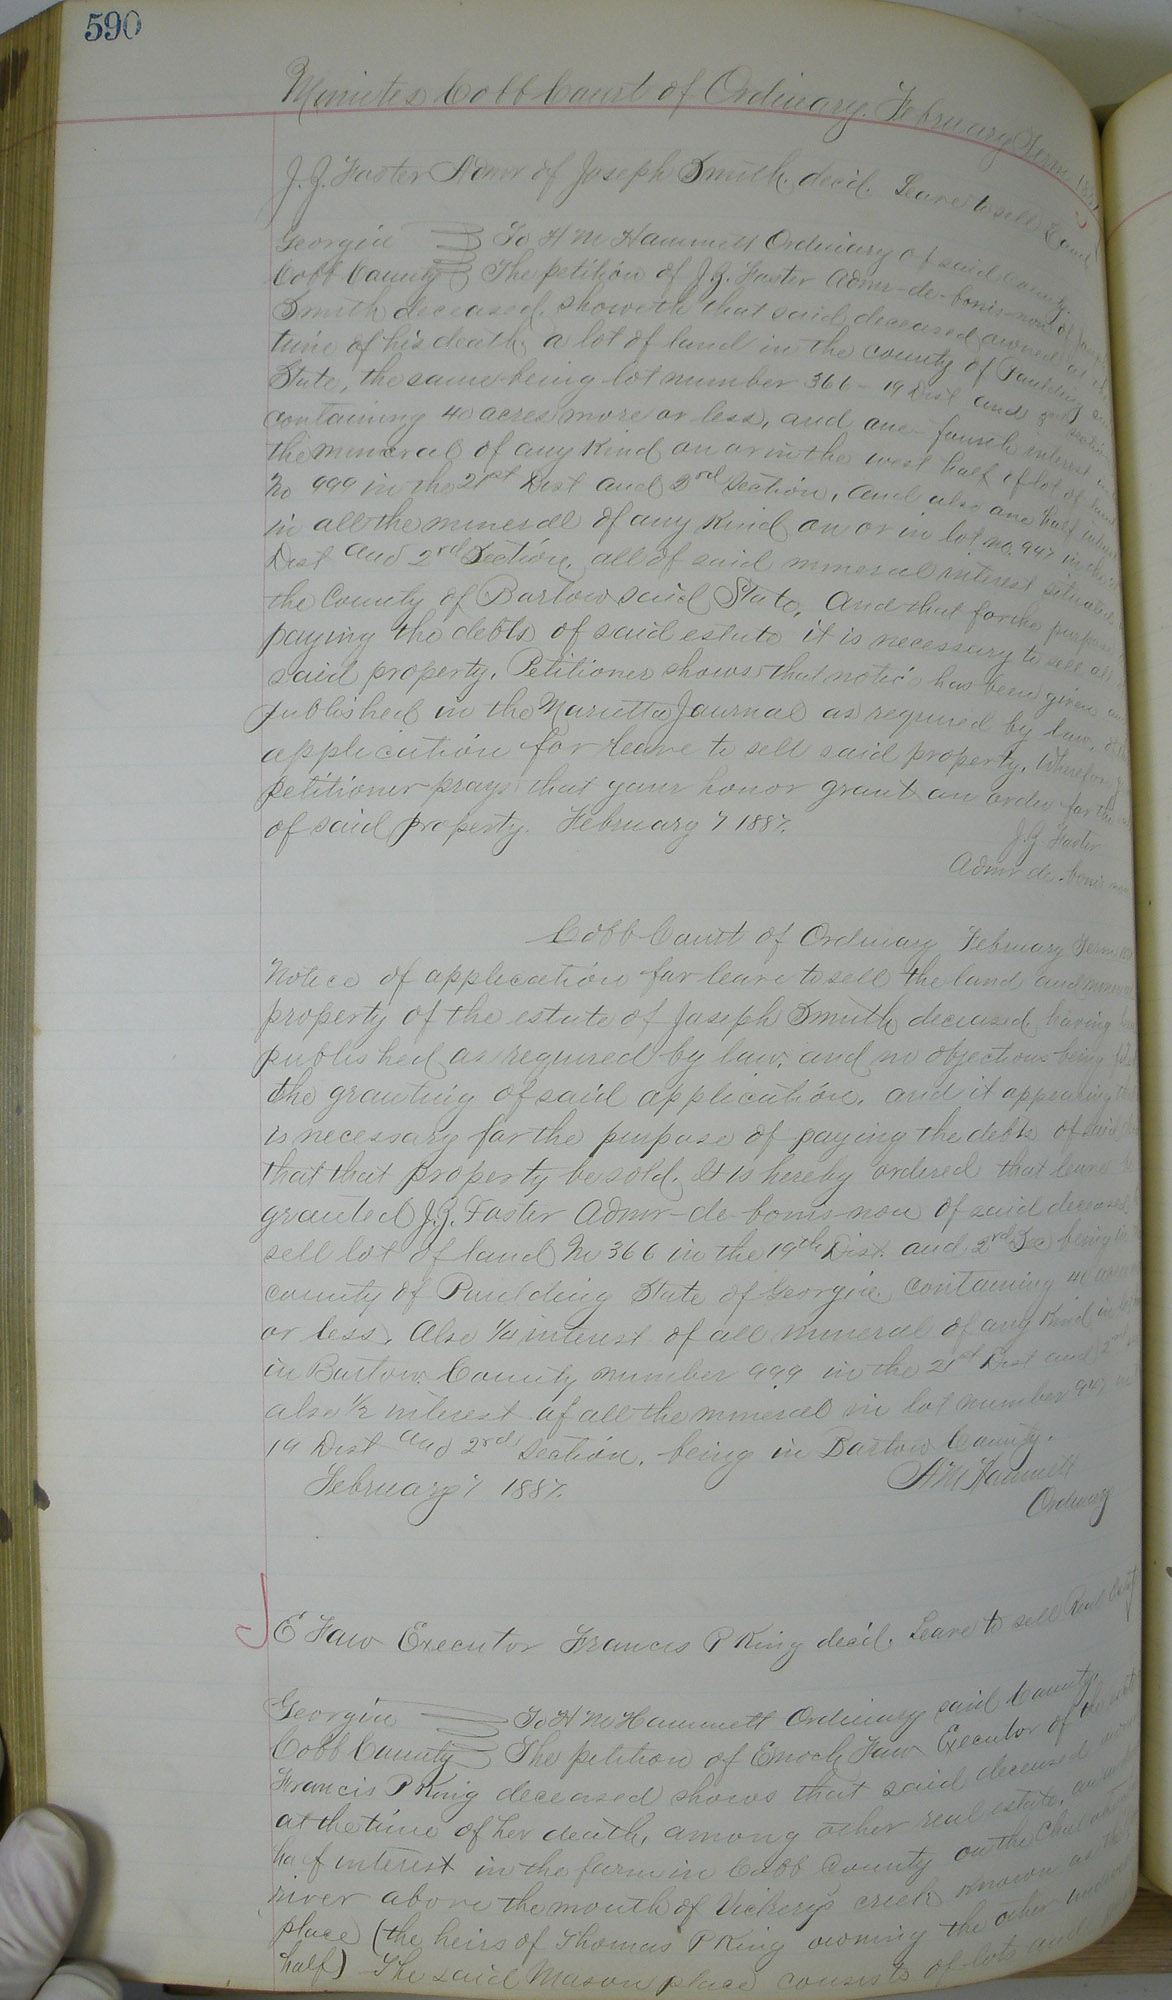 590
Minutes Cobb Court of Ordinary. February Term
J. J. Foster Admr of Joseph Smith, decd. Leave to sell Land
Georgia To H M Hammett Ordinary of said County
Cobb County The petition of J. J. Foster Admr-de-bonis-non of
Smith deceased, showeth that said deceased owned at
time of his death, a lot of land in the county of Paulding
State, the same being lot number 366 - 19 Dist and section
containing 40 acres more or less, and one-fourth interest
the mineral of any kind on or in the west half of lot of land
No 999 in the 21st Dist and 2rd Section, and also one half interest
in all the mineral of any kind on or in lot no. 947 in the
Dist and 2rd Section, all of said mineral interest situated
the County of Bartow said State. And that for the purpose
paying the debts of said estate it is necessary to sell all
said property. Petitioner shows that notice has been given
published in the Marietta Journal as required by law,
application for leave to sell said property. Wherefore
petitioner prays that your honor grant an order for the
of said property. February 7 1887.
J. J. Foster
Admr de bonis
Cobb Court of Ordinary February Term
Notice of application for leave to sell the land and
property of the estate of Joseph Smith, deceased, having
published as required by law, and no objections being
the granting of said application, and it appearing
is necessary for the purpose of paying the debts of said
that that property be sold. It is hereby ordered that leave
granted J. J. Foster Admr-de-bonis-non of said deceased
sell lot of land No 366 in the 19th Dist. and 2rd Sec being
county of Paulding State of Georgia containing 40
or less. Also 1/4 interest of all mineral of any kind in
in Bartow County number 999 in the 21st Dist and
also 1/2 interest of all the mineral in lot number 947
19 Dist and 2rd Section, being in Bartow County.
February 7 1887. H M Hammett
Ordinary
E Faw Executor Francis P King decd. Leave to sell Real
Georgia To H M Hammett Ordinary said County.
Cobb County The petition of Enoch Faw Executor of
Francis P King deceased shows that said deceased
at the time of her death, among other real estate,
half interest in the farm in Cobb County on the
river above the mouth of Vickerys creek known as the
place (the heirs of Thomas P King owning the other
half) The said Mason place consists of lots